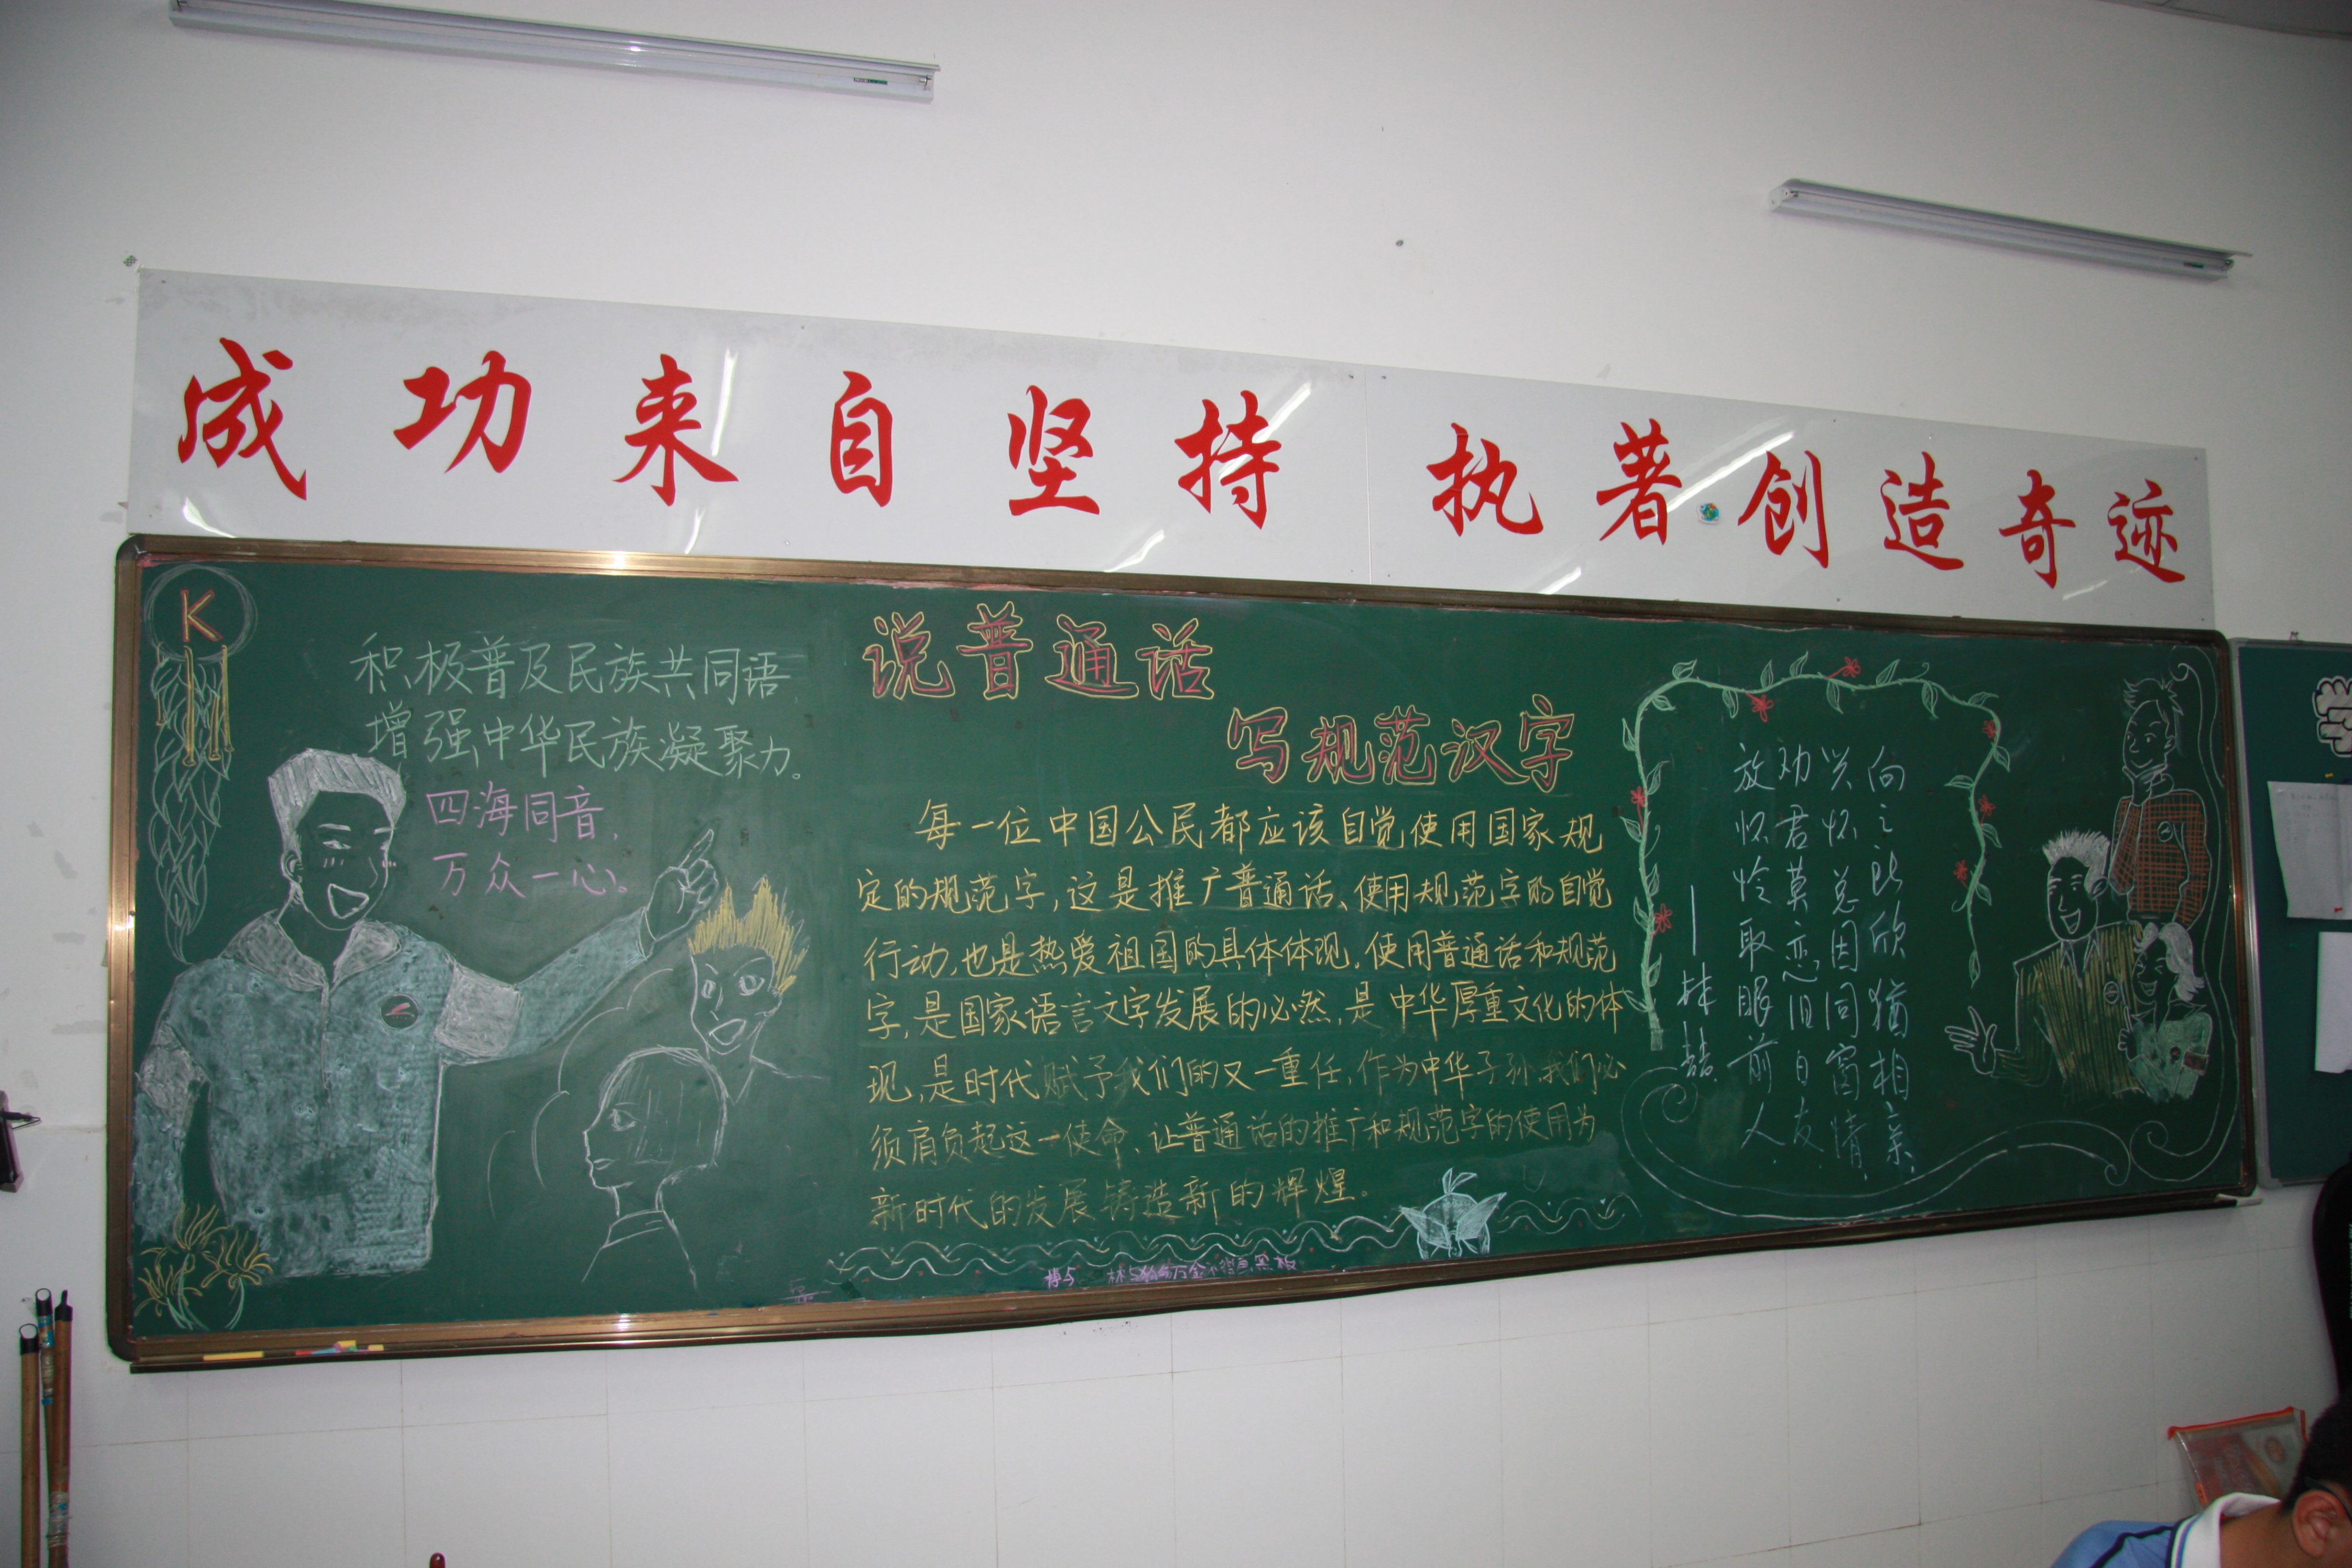 成功来自坚持 执著创造奇迹
K
积极普及民族共同语,
增强中华民族凝聚力。
四海同音,
万众一心。
说普通话
写规范汉字
每一位中国公民都应该自觉使用国家规
定的规范字,这是推广普通话、使用规范字的自觉
行动,也是热爱祖国的具体体现,使用普通话和规范
字,是国家语言文字发展的必然,是中华厚重文化的体
现,是时代赋予我们的又一重任,作为中华子孙,我们必
须肩负起这一使命、让普通话的推广和规范字的使用为
新时代的发展铸造新的辉煌。
向之所欣犹相亲,
兴怀总因同窗情,
劝君莫恋旧日友,
放怀怜取眼前人.
——林喆